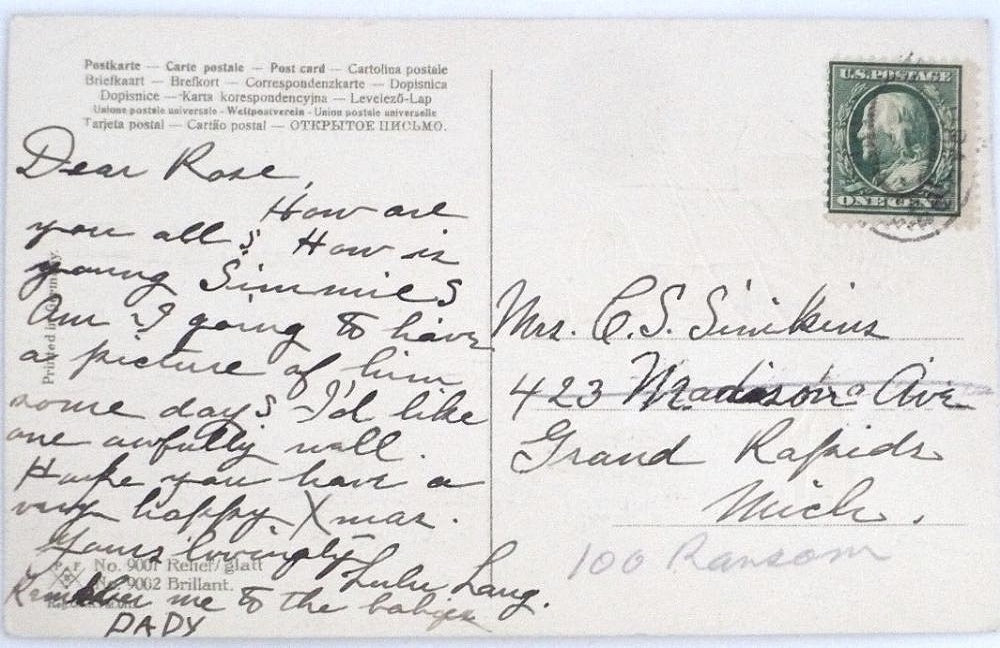 Postkarte — Carte postale — Post card — Cartolina postale
Briefkaart — Brefkort — Correspondenzkarte — Dopisnica
Dopisnice — Karta korespondencyjna — Levelező-Lap
Unione postale universale - Weltpostverein - Union postale universelle
Tarjeta postal — Cartão postal — ОТКРЫТОЕ ПИСЬМО.
Dear Rose,
How are
you all? How is
young Simmie?
Am I going to have
a picture of him
some day? I'd like
one awfully well.
Hope you have a
very happy Xmas.
Yours lovingly
Lulu Lang.
Remember me to the babies
DADY
Printed in Germany.
P. F. B. No. 9001 Relief/glatt
No. 9002 Brillant.
U.S. POSTAGE
ONE CENT
Mrs. C. S. Simkins
423 Madison Ave
Grand Rapids
Mich.
100 Ransom